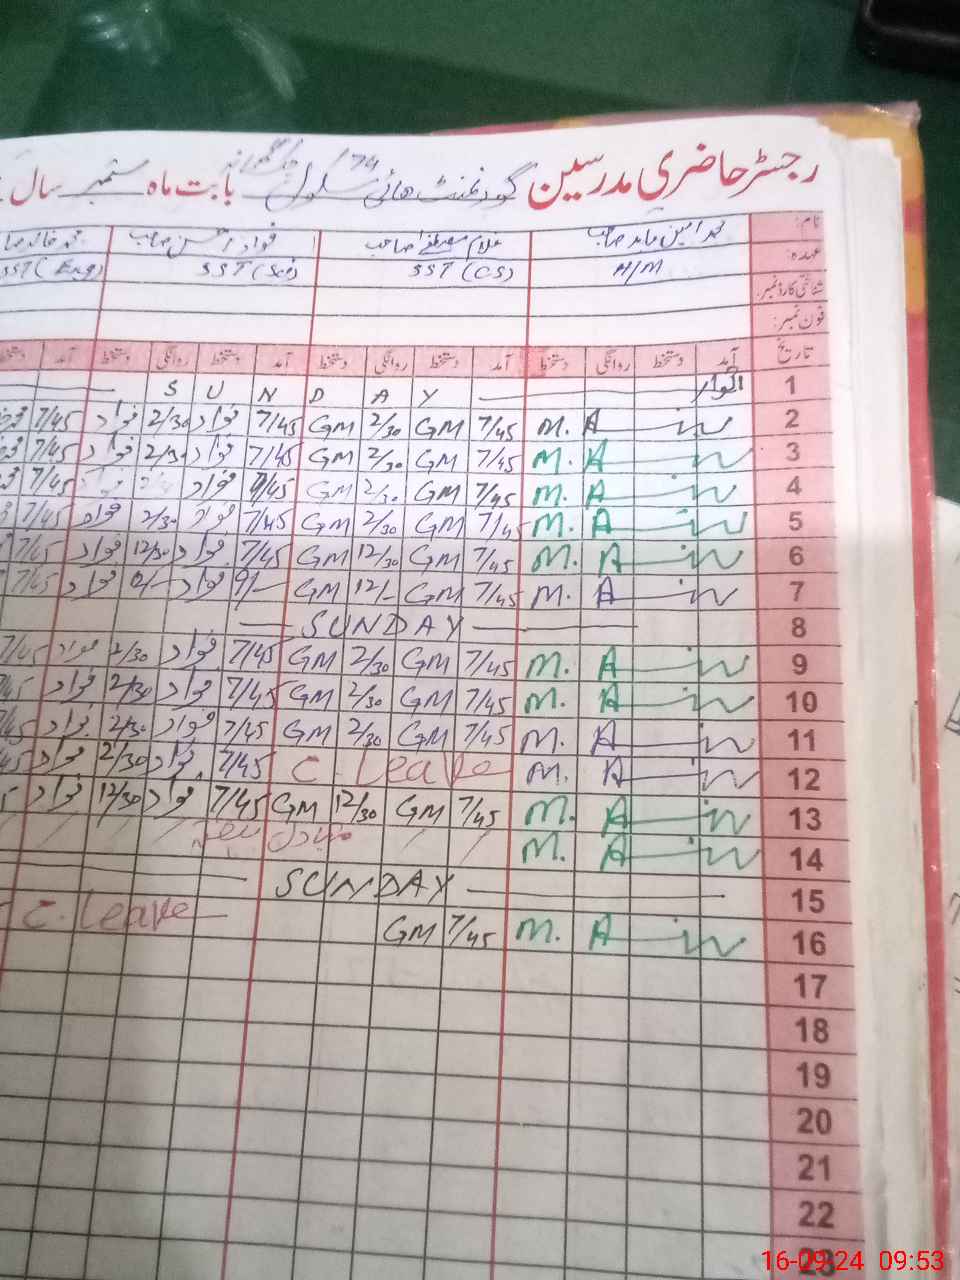 رجسٹر حاضری مدرسین گورنمنٹ ہائی سکول 74 بابت ماہ ستمبر سال
نام: محمد امین صاحب غلام مصطفیٰ صاحب فواد احسن صاحب محمد خالد
عہدہ: H/M SST (CS) SST (Sci) SST (Eng)
شناختی کارڈ نمبر:
فون نمبر:
تاریخ آمد دستخط روانگی دستخط آمد دستخط روانگی دستخط آمد دستخط روانگی دستخط آمد
1 اتوار S U N D A Y
2 M. A 7/45 GM 2/30 GM 7/45 فواد 2/30 فواد 7/45
3 M. A 7/45 GM 2/30 GM 7/45 فواد 2/30 فواد 7/45
4 M. A 7/45 GM 2/30 GM 7/45 فواد 7/45
5 M. A 7/45 GM 2/30 GM 7/45 فواد 2/30 فواد 7/45
6 M. A 7/45 GM 12/30 GM 7/45 فواد 12/30 فواد 7/45
7 M. A 7/45 GM 12/- GM 9/- فواد فواد 7/45
8 SUNDAY
9 M. A 7/45 GM 2/30 GM 7/45 فواد 2/30 فواد 7/45
10 M. A 7/45 GM 2/30 GM 7/45 فواد 2/30 فواد
11 M. A 7/45 GM 2/30 GM 7/45 فواد 2/30 فواد
12 M. A C. Leave 7/45 فواد 2/30 فواد
13 M. A 7/45 GM 12/30 GM 7/45 فواد 12/30 فواد
14 M. A
15 SUNDAY
16 M. A 7/45 GM C. Leave
17
18
19
20
21
22
23
16-09-24 09:53